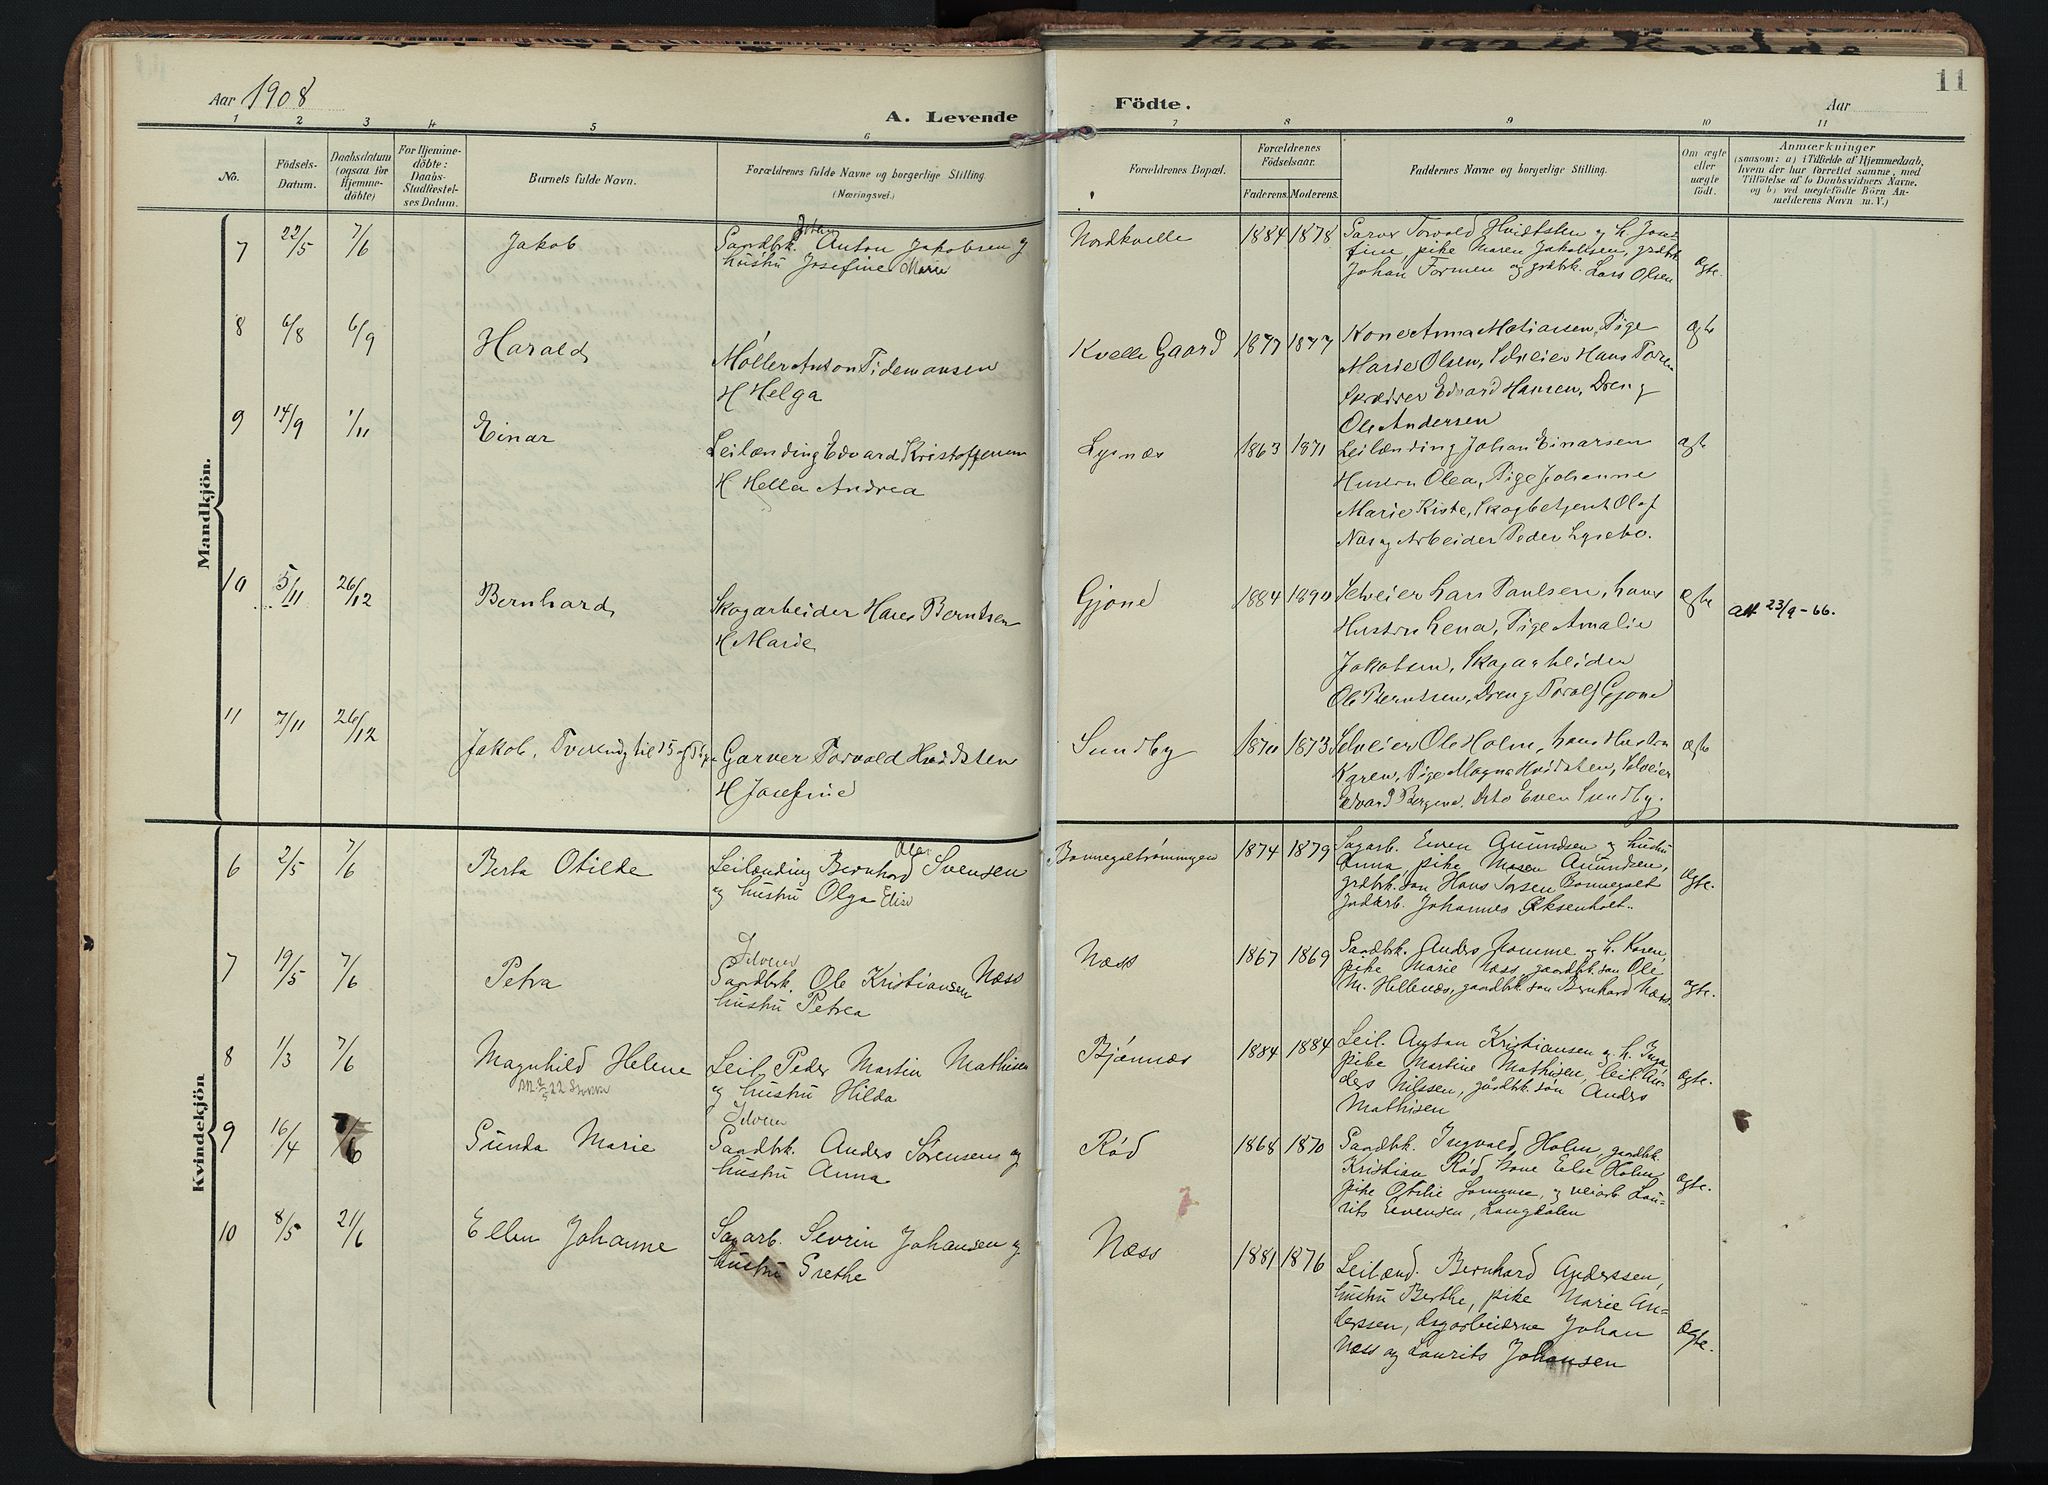 1906 1924 Kvelde
11
Aar 1908
A. Levende
Födte.
Aar
1 2 3 4 5 6 7 8 9 10 11
No.
Födsels-
Datum.
Daabsdatum
(ogsaa for
Hjemme-
döbte)
For Hjemme-
döbte:
Daabs-
Stadfæstel-
ses Datum.
Barnets fulde Navn.
Forældrenes fulde Navne og borgerlige Stilling.
(Næringsvei.)
Forældrenes Bopæl.
Forældrenes
Födselsaar.
Faderens. Moderens.
Faddernes Navne og borgerlige Stilling.
Om ægte
eller
uægte
födt.
Anmærkninger
(saasom: a) i Tilfælde af Hjemmedaab,
hvem der har forrettet samme, med
Tilföielse af to Daabsvidners Navne.
og b) ved uægtefödte Börn An-
melderens Navn m. V.)
Mandkjön.
7 22/5 7/6 Jakob
Gaardbk. Anton Jakobsen og
hustru Josefine Marie
Nordkvelle 1884 1878
Garver Torvald Hvidtsten og h. Jose-
fine, pike Maren Jakobsen, grdbk.
Johan Formen og grdbk. Lars Olsen
Ægte.
8 6/8 6/9 Harald
Møller Anton Tidemansen
H Helga
Kvelle Gaard 1877 1877
Kone Anna Matiassen, Pige
Marie Olsen, Selveier Hans
Skrædder Edvard Hansen, Dreng
Ole Andersen
Ægte
9 14/9 1/11 Einar
Leilænding Edvard Kristoffersen
H Hella Andrea
Lysnæs 1863 1871
Leilænding Johan Einarsen
Hustru Olea, Pige Johanne
Marie Kiste, Skogbetjent Olaf
Næs og Arbeider Peder Lysebo.
Ægte
10 5/11 26/12 Bernhard
Skogarbeider Hans Berntsen
H Marie
Gjone 1884 1890
Selveier Lars Paulsen, hans
Hustru Lena, Pige Amalie
Jakobsen, Skogarbeider
Ole Berntsen, Dreng Toralf Gjone
Ægte
att 23/9-66.
11 7/11 26/12 Jakob, Tvilling til 15 af Piger
Garver Torvald Hvidsten
H Josefine
Sundby 1870 1873
Selveier Ole Holm, hans Hustru
Karen, Pige Magna Hvidsten, Selveier
Edvard Bergene, Dito Even Sundby.
Ægte
Kvindekjön
6 2/5 7/6 Berta Otilde
Leilænding Bernhard Olai Svensen
og hustru Olga Elise
Bonnegoltrømningen 1874 1879
Sagarb. Even Amundsen og hustru
Anna, pike Maren Amundsen,
grdbk. søn Hans Torsen Bonnegolt
Jndarb. Johannes Øksenholt.
Ægte.
7 19/5 7/6 Petra
Selveier
Gaardbk. Ole Kristiansen Næss
hustru Petrea
Næss 1867 1869
Gaardbk. Anders Jomme og h. Karen,
pike Marie Næss, gaardbk. søn Ole
M. Hellenæs, gaardbk. søn Bernhard Næss.
ægte.
8 1/3 7/6 Magnhild Helene
Leil. Peder Martin Mathisen
og hustru Hilda
Bjønnæs 1884 1884
Leil. Anton Kristiansen og h. Inga,
pike Martine Mathisen, leil. An-
ders Nilssen, gårdbk. søn Anders
Mathisen
Ægte.
9 16/4 7/6 Gunda Marie
Selveier
Gaardbk. Anders Sørensen og
hustru Anna
Rød 1868 1870
Gaardbk. Ingvald Holm, gaardbk.
Kristian Rød, kone Else Holm,
pike Otilie Jomme, og veiarb. Lau-
rits Evensen, Langdalen
Ægte.
10 8/5 21/6 Ellen Johanne
Sagarb. Sevrin Johansen og
hustru Grethe
Næss 1881 1876
Leilænd. Bernhard Anderssen,
hustru Berthe, pike Marie An-
derssen, dagarbeiderne Johan
Næss og Laurits Johansen
Ægte.